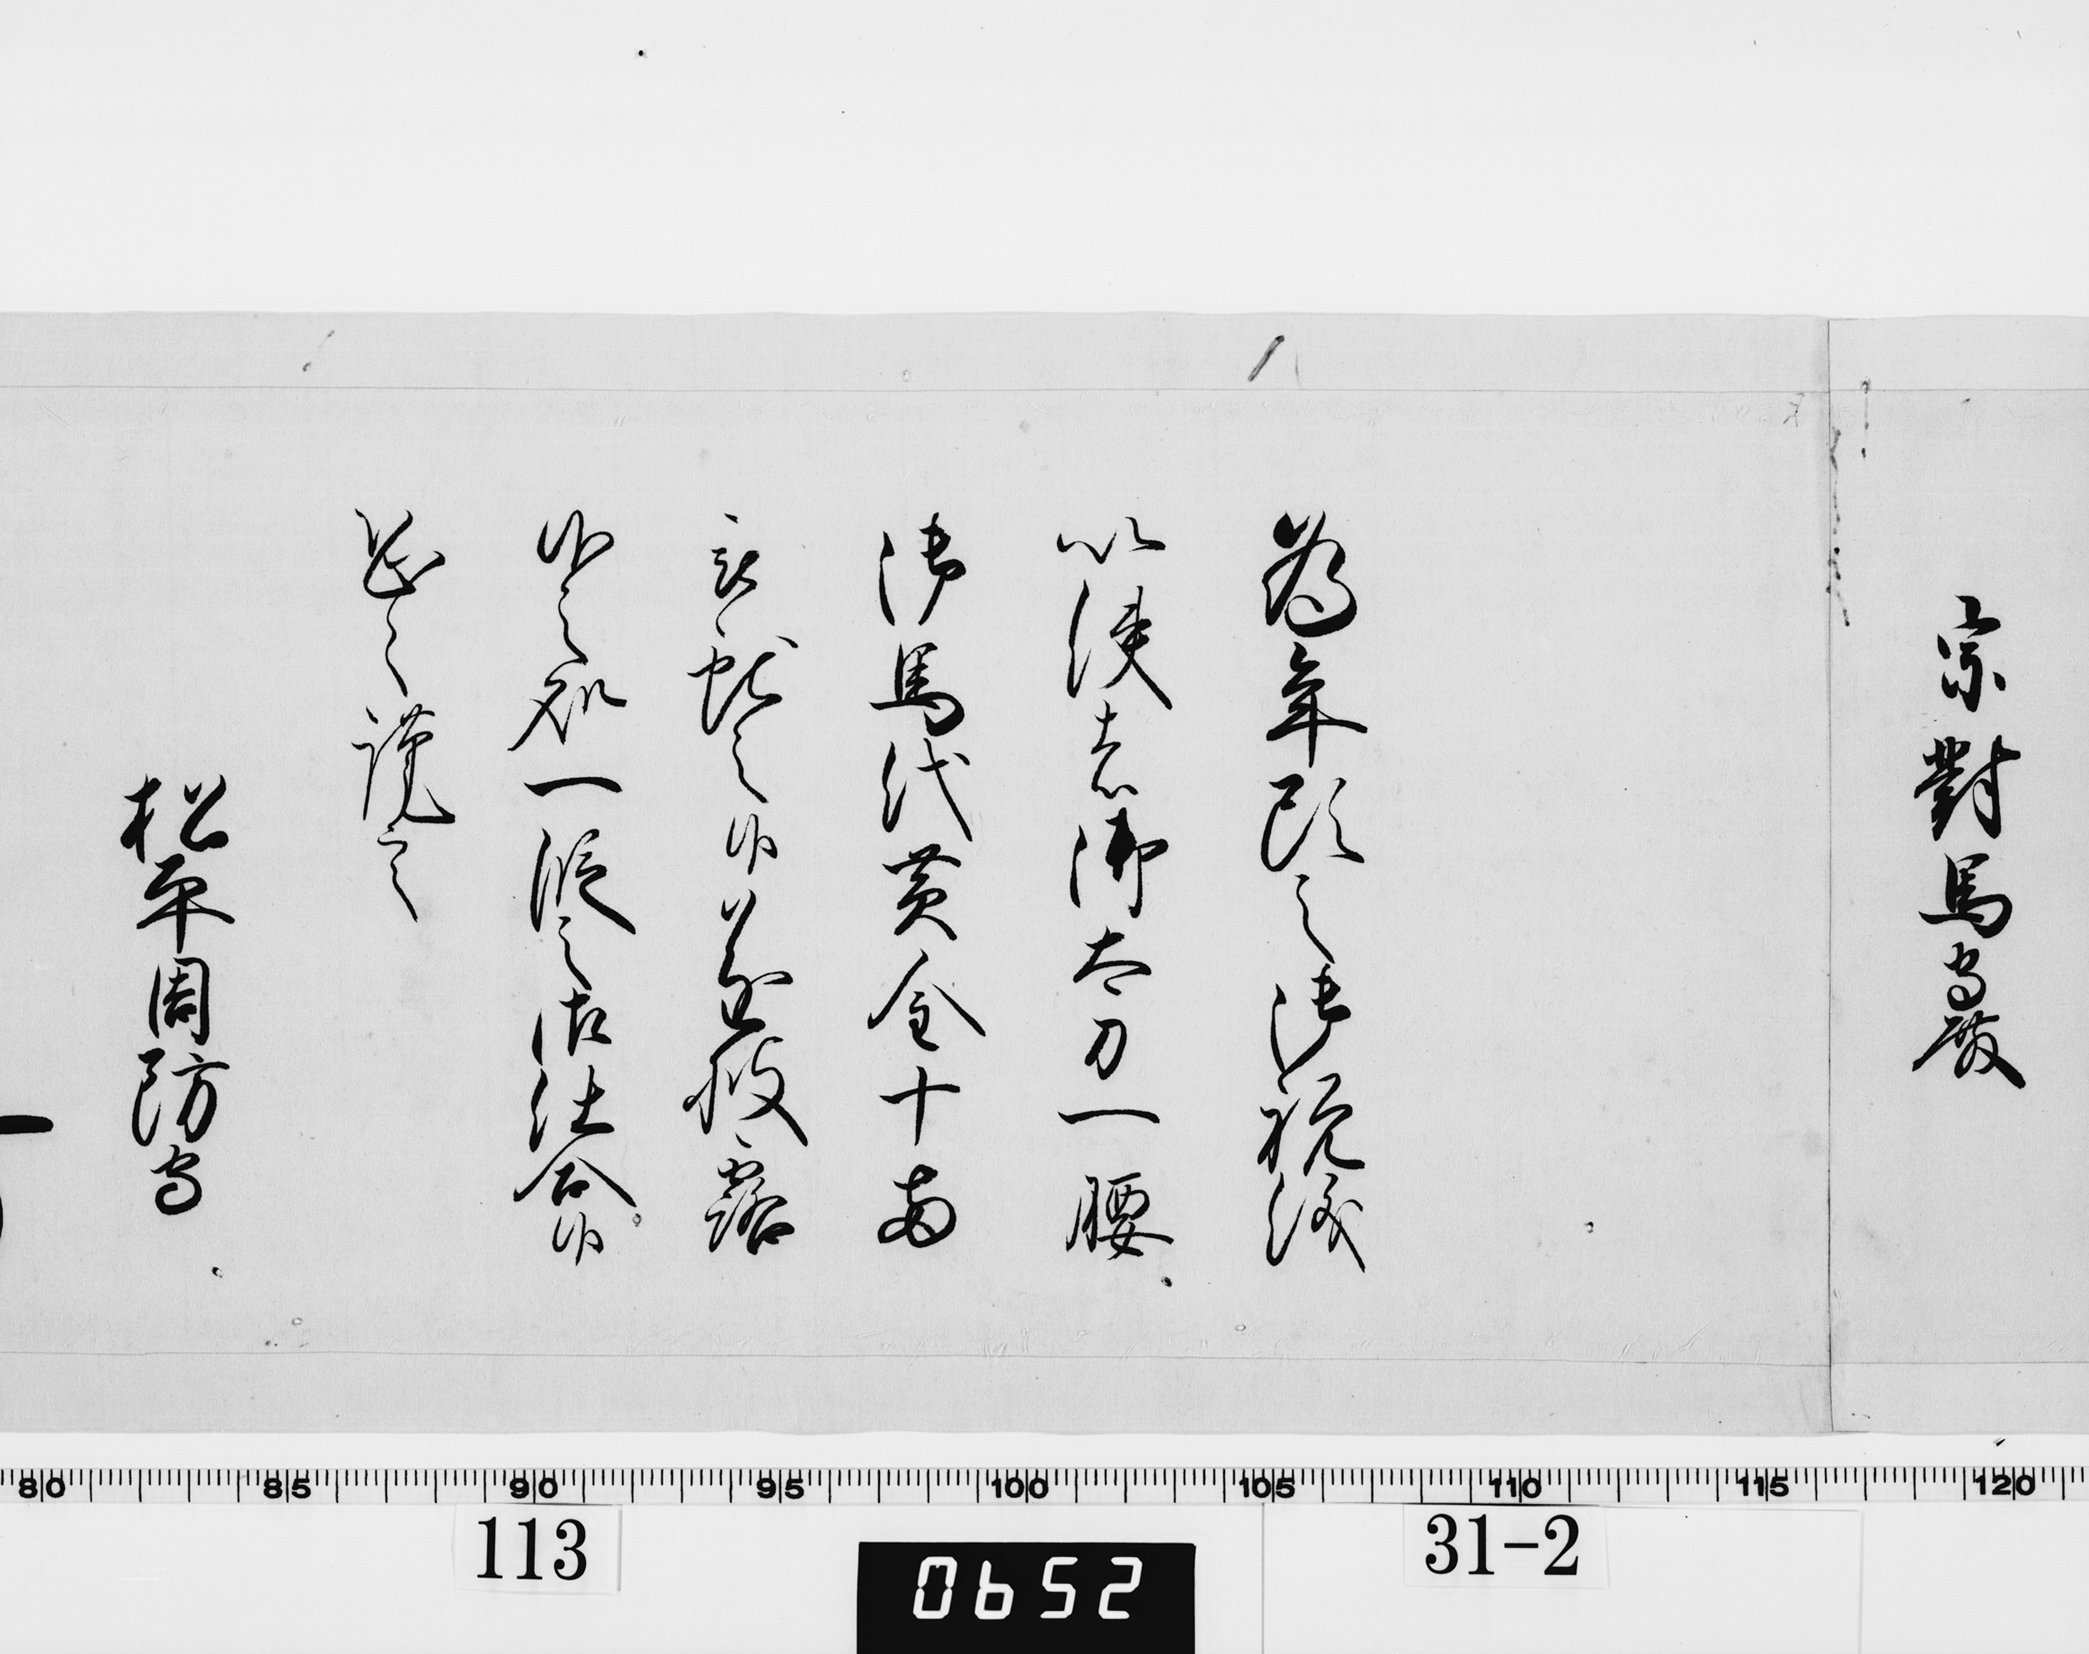 宗對馬守殿
為年頭之御祝儀
以使者御太刀一腰
御馬代黄金十両
被献之候遂披露
候之処一段之御仕合候
恐々謹言
松平周防守
80 85 90 95 100 105 110 115 120
113
31-2
0652